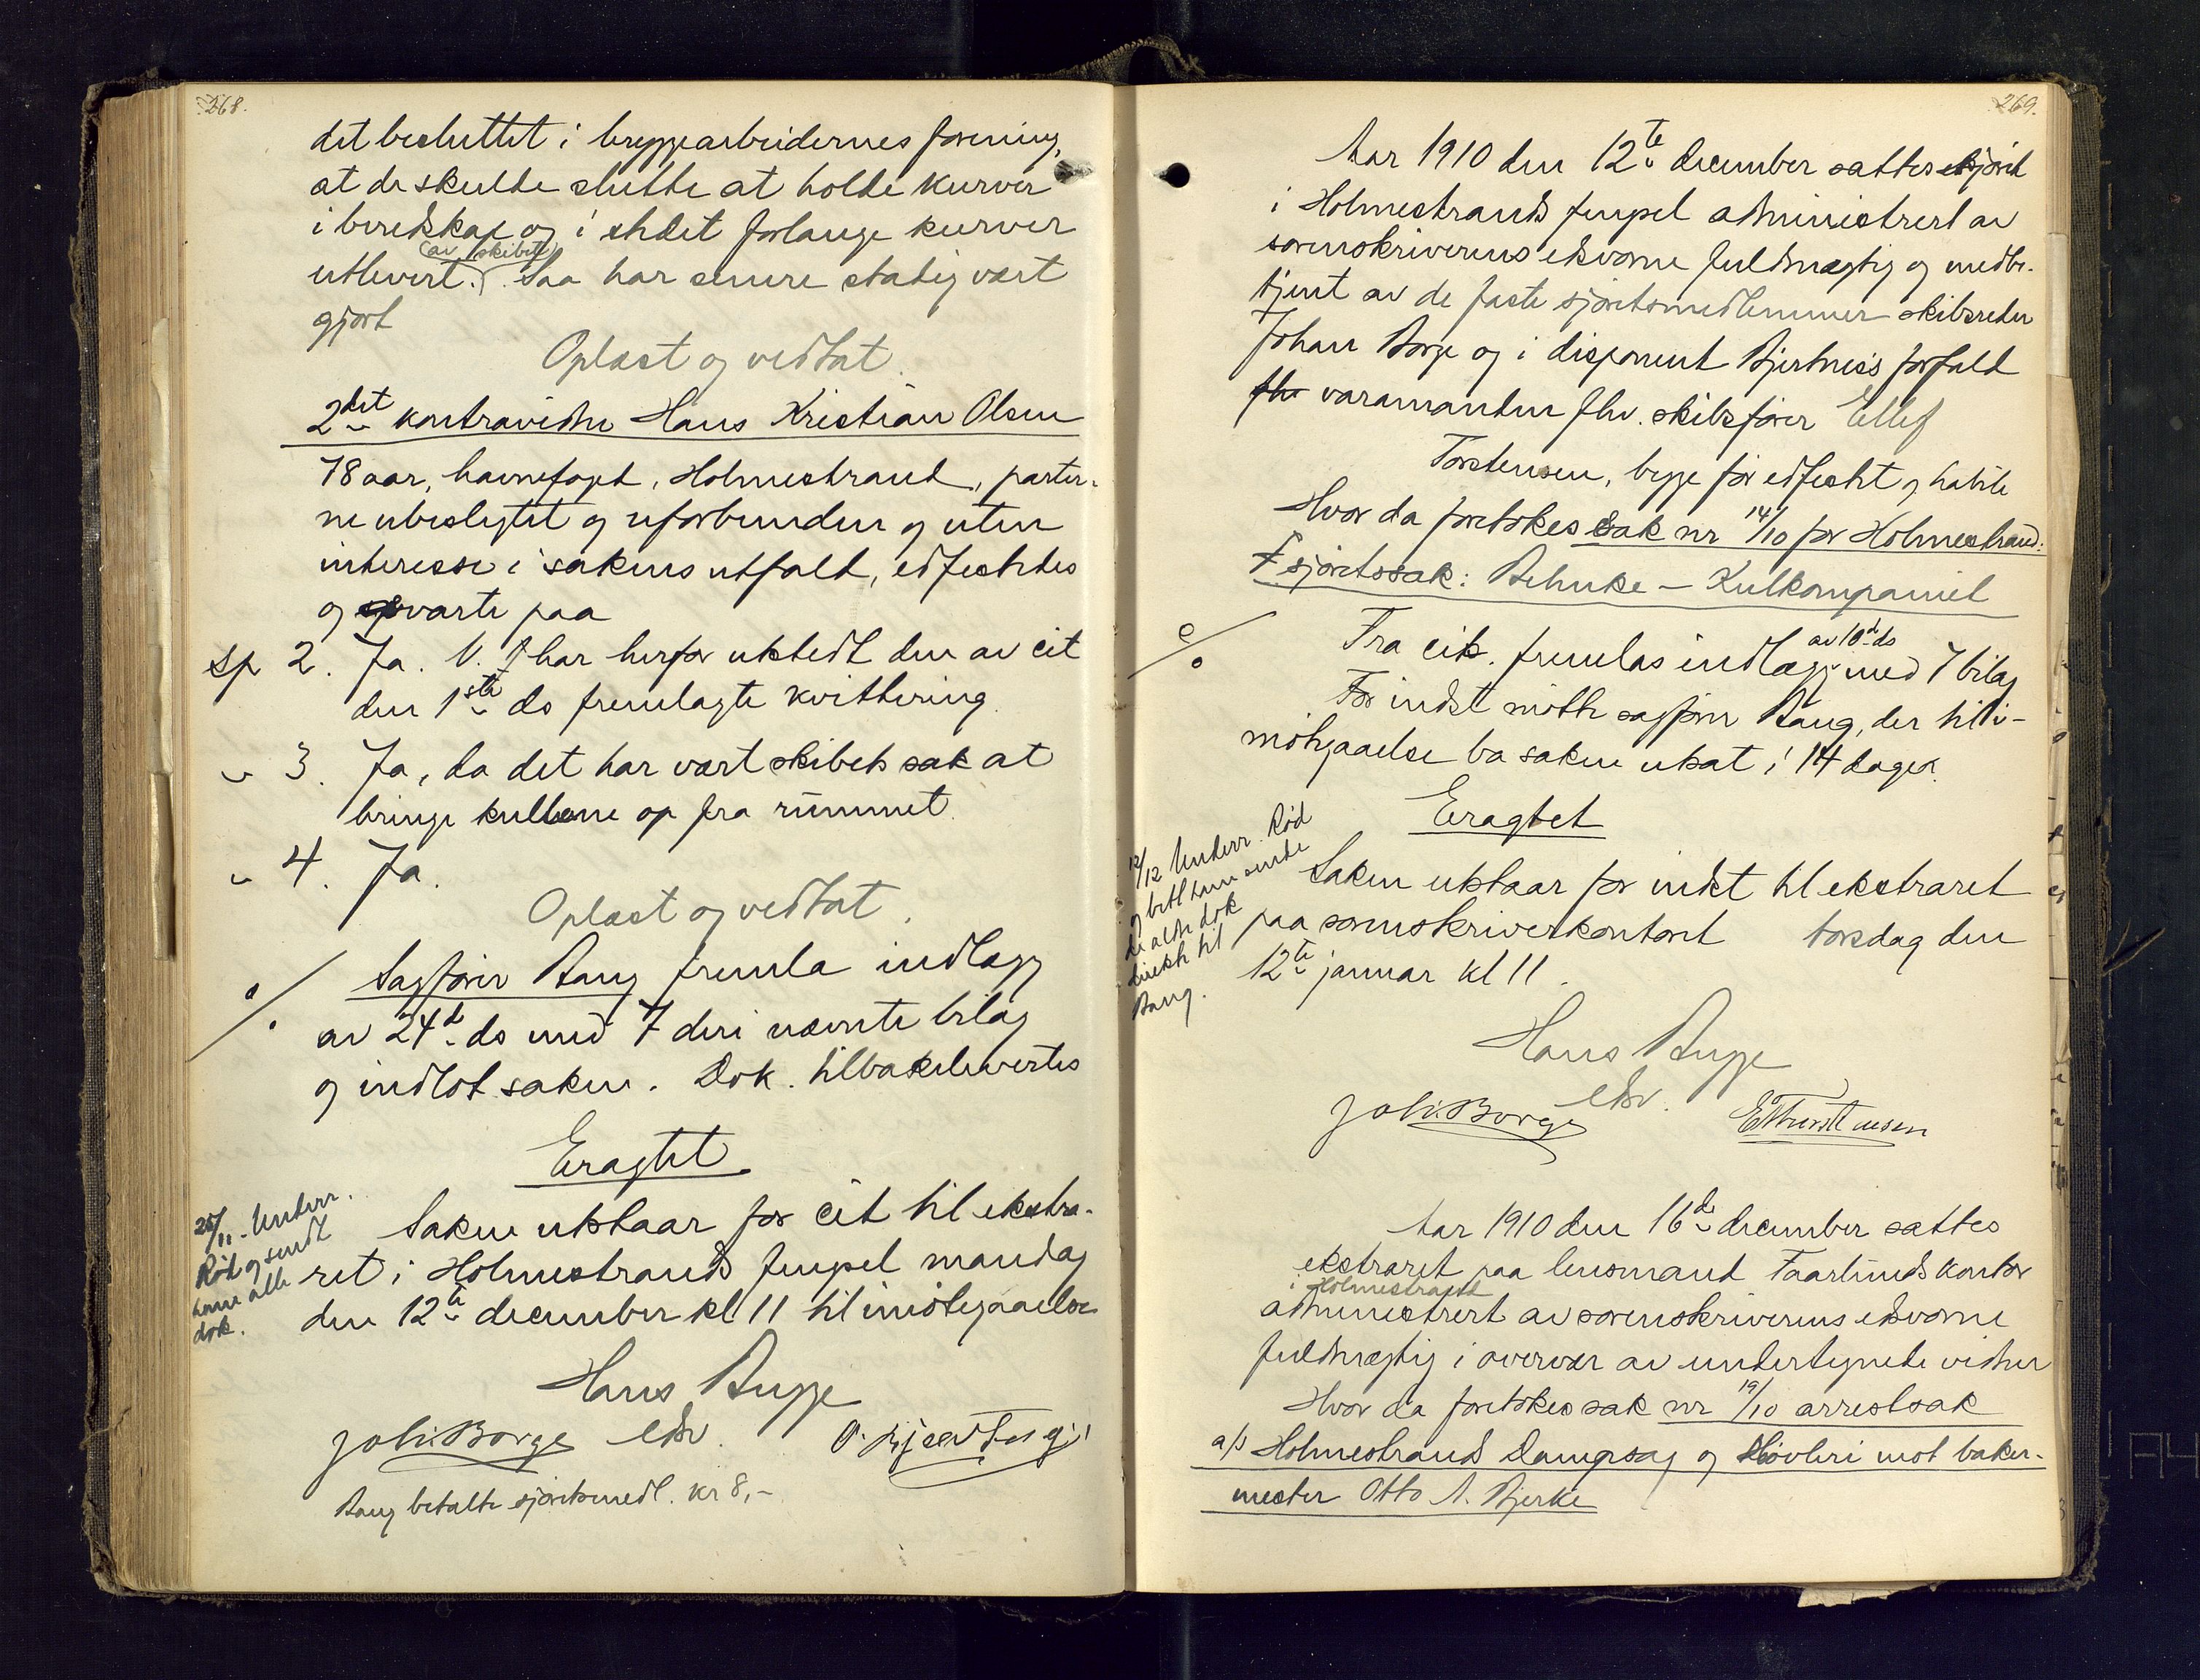 268.
det besluttet i bryggearbeidernes forening,
at de skulde slutte at holde kurver
i beredskap og i stedet forlange kurver
(av skibet)
utlevert. Saa har senere stadig vært
gjort
Oplæst og vedtat.
2det kontravidne Hans Kristian Olsen
78 aar, havnefoged, Holmestrand, parter-
ne ubeslegtet og uforbunden og uten
interesse i sakens utfald, edfæstedes
og svarte paa
sp 2. Ja. V. har herfor utstedt den av cit
den 1ste ds fremlagte kvittering.
" 3. Ja, da det har været skibets sak at
bringe kullene op fra rummet.
" 4. Ja.
Oplæst og vedtat.
Sagfører Bang fremla indlæg
av 24d ds med 7 deri nævnte bilag
og indlot saken. Dok. tilbakeleveredes
Eragtet
25/11. Underr.
Röd og sendt
ham alle
dok.
Saken utstaar for cit til ekstra-
ret i Holmestrands fengsel mandag
den 12te december kl 11 til imøtegaaelse
Hans Bugge
edsv.
Joh. Borge
Bang betalte sjøretsmedl. kr 8,-
269.
Aar 1910 den 12te december sattes sjøret
i Holmestrands fengsel administrert av
sorenskriverens edsvorne fuldmægtig og medbe-
tjent av de faste sjøretsmedlemmer skibsreder
Johan Borge og i disponent Bjertnes's forfald
fhv varamanden fhv. skibsfører Ellef
Torstensen, begge før edfæstet og habile
Hvor da foretokes sak nr 14/10 for Holmestrand:
sjøretssak: Behnke – Kulkompaniet
Fra cit. fremlas indlæg med 7 bilag
av 10d ds
For indst møtte sagfører Bang, der til i-
møtegaaelse ba saken utsat i 14 dager.
Eragtet
12/12 Underr. Röd
og bedt ham sende
de alle dok
direkte til
Bang.
Saken utstaar for indst til ekstraret
paa sorenskriverkontoret torsdag den
12te januar kl 11.
Hans Bugge
edsv.
Joh. Borge
E Thorstensen
Aar 1910 den 16de december sattes
ekstraret paa lensmand Faarlunds kontor
i Holmestrand
administrert av sorenskriverens edsvorne
fuldmægtig i overvær av undertegnede vidner
Hvor da foretokes sak nr 19/10 arrestsak
a/s Holmestrands Dampsag og Høvleri mot baker-
mester Otto A. Bjerke